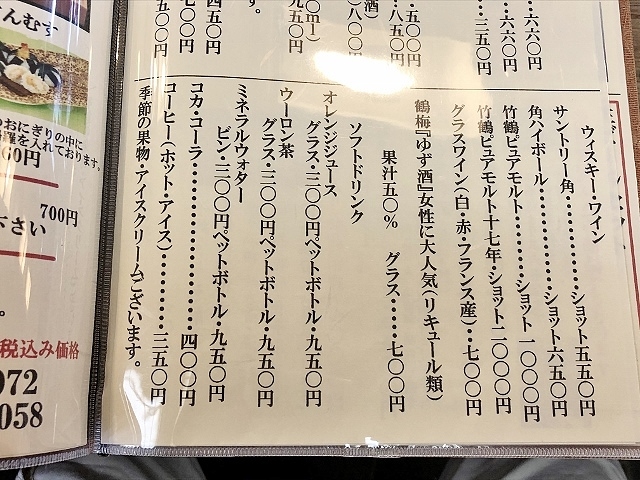 ・六六〇円
・六六〇円
・・三五〇円
・五〇〇円
・八五〇円
酒）
八〇〇円
ml）
九五〇円
す。
四五〇円
七〇〇円
五〇〇円
ウィスキー・ワイン
サントリー角・・・・・・・・・・ショット五五〇円
角ハイボール・・・・・・・・・・ショット六五〇円
竹鶴ピュアモルト・・・・・・ショット一〇〇〇円
竹鶴ピュアモルト十七年・ショット二〇〇〇円
グラスワイン（白・赤・フランス産）・・七〇〇円
鶴梅『ゆず酒』女性に大人気（リキュール類）
果汁五〇％ グラス・・・・・七〇〇円
ソフトドリンク
オレンジジュース
グラス・三〇〇円ペットボトル・九五〇円
ウーロン茶
グラス・三〇〇円ペットボトル・九五〇円
ミネラルウォター
ビン・三〇〇円ペットボトル・九五〇円
コカ・コーラ・・・・・・・・・・・・・・・・四〇〇円
コーヒー（ホット・アイス）・・・・・・・・三五〇円
季節の果物・アイスクリームございます。
んむす
おにぎりの中に
を入れております。
60円
700円
下さい
。
税込み価格
972
058